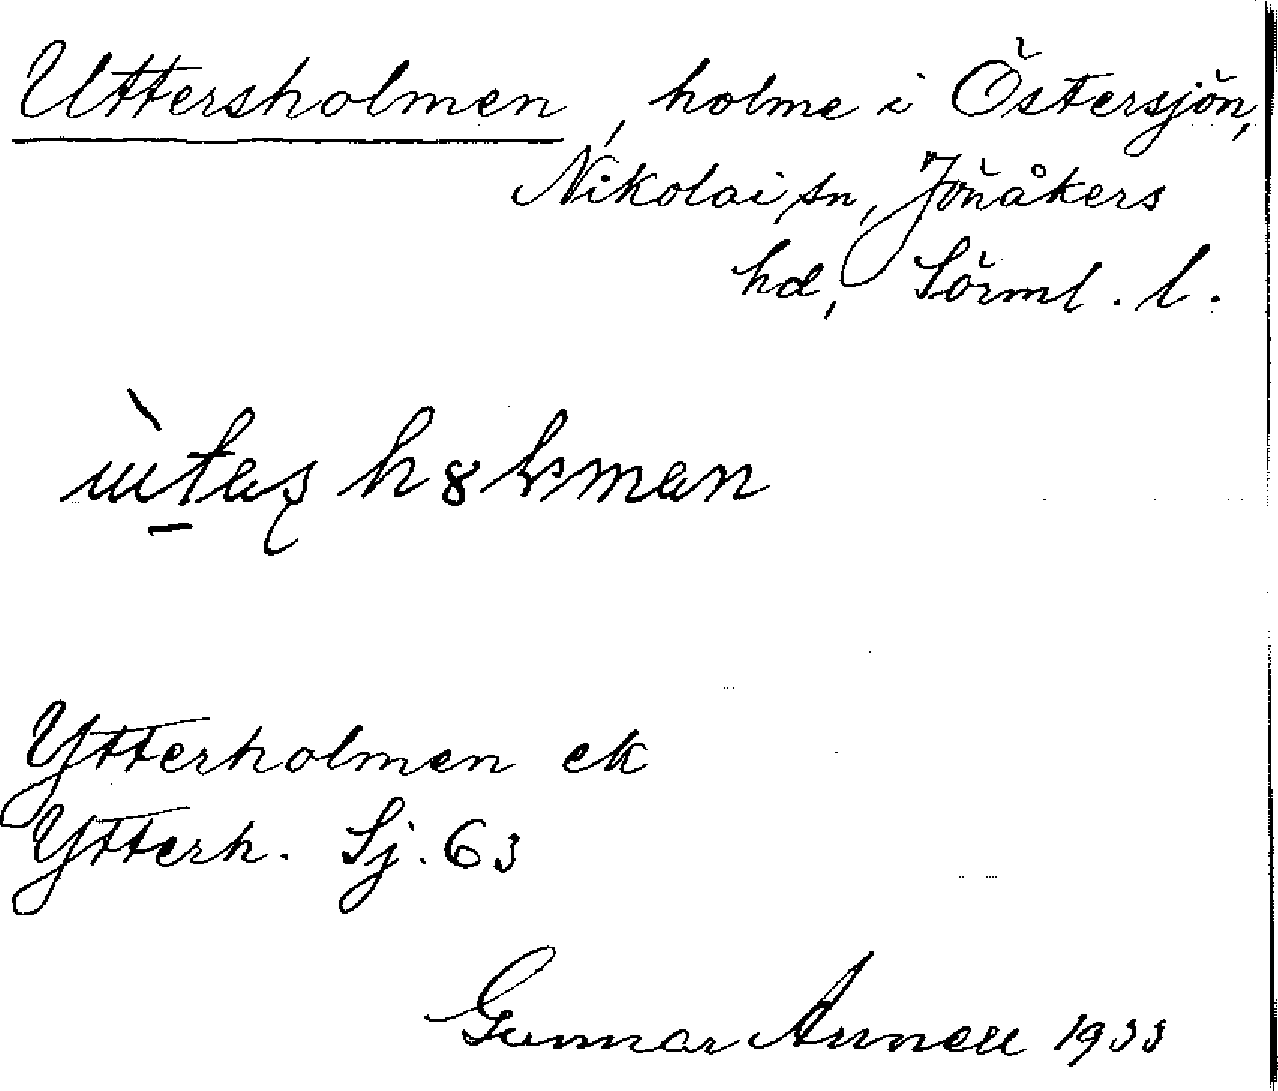 Uttersholmen, holme i Östersjön,
Nikolai sn, Jönåkers
hd, Sörml. l.
Ytterholmen ek
Ytterh. Sj. 63
Gunnar Annell 1933